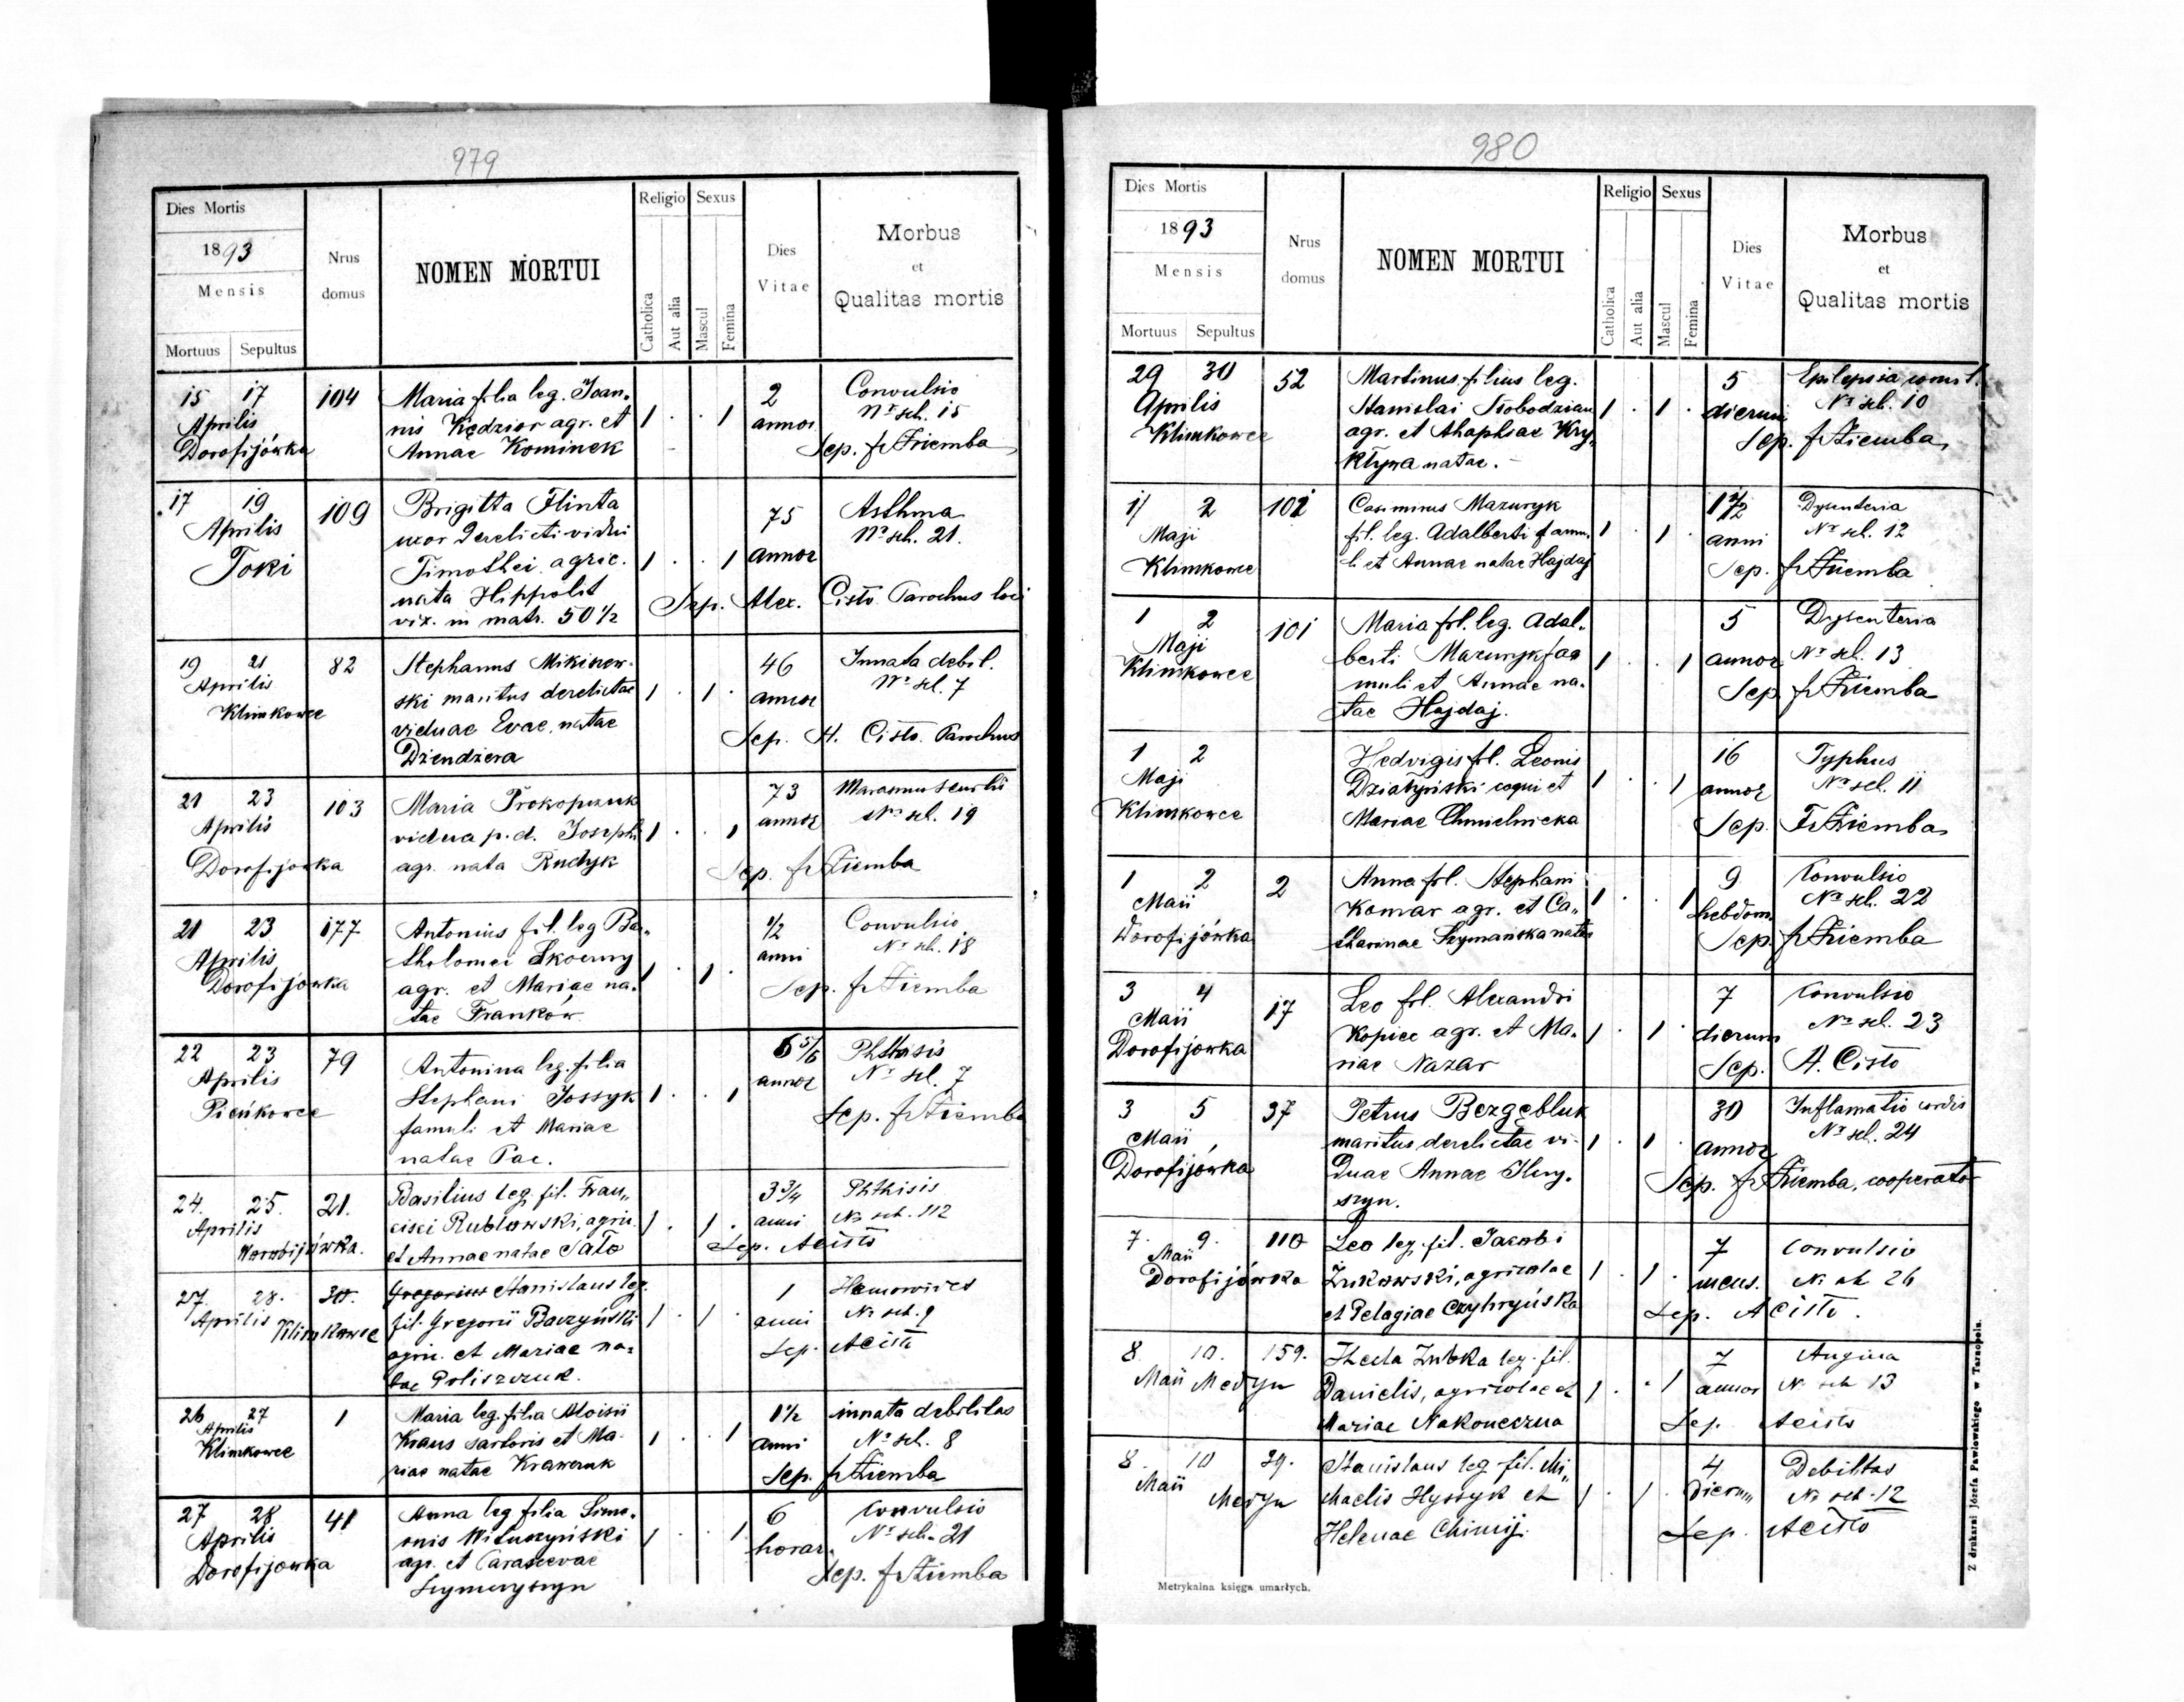 979
Dies Mortis
1893
Mensis
Mortuus Sepultus
Nrus domus
NOMEN MORTUI
Religio Sexus
Catholica Aut alia Mascul Femina
Dies Vitae
Morbus
et
Qualitas mortis
15 17 104 Maria filia leg. Joan- 2 Convulsio
Aprilis nis Kędzior agr. et 1 . . 1 annor Nr sch. 15
Dorofijówka Annae Kominek Sep. fr Ziemba
17 19 109 Brigitta Flinta 75 Asthma
Aprilis uxor derelicti vidui Nr sch. 21.
Toki Timothei agric. 1 . . 1 annor
nata Hippolit Sep. Alex. Cisło Parochus loci
vix. in matr. 50 1/2
19 21 82 Stephanus 46 Innata debil.
Aprilis ski maritus derelictae 1 . 1 . annor Nr sch. 7
Klimkowce viduae Evae, natae Sep. A. Cisło Parochus
Dziendziera
21 23 103 Maria Prokopczuk 73 Marasmus senilis
Aprilis vidua p.d. Josephi 1 . . 1 annor Nr sch. 19
Dorofijowka agr. nata Rudyk Sep. fr Ziemba
21 23 177 Antonius fil. leg Bar- 1/2 Convulsio
Aprilis tholomei Skoczny anni Nr sch. 18
Dorofijowka agr. et Mariae na- 1 . 1 . Sep. fr Ziemba
tae Franków
22 23 79 Antonina leg. filia 6 5/6 Phthisis
Aprilis Stephani Jossyk 1 . . 1 annor Nr sch. 7
Pieńkowce famuli et Mariae Sep. fr Ziemba
natae Pac.
24. 25. 21. Basilius leg. fil. Fran- 3 3/4 Phthisis
Aprilis cisci Rublowski, agric. 1 . 1 . anni Nr sch. 112
Worobijówka. et Annae natae Sato Sep. A Cisło
27. 28. 30. Gregorius Stanislaus leg. 1
Aprilis Klimkowce fil. Gregorii Baczyński 1 . 1 . anni Nr sch. 9
agric. et Mariae na- Sep. A Cisło
tae Poliszczuk.
26 27 1 Maria leg. filia Aloisii 1 1/2 innata debilitas
Aprilis Kraus sartoris et Ma- 1 . . 1 anni Nr sch. 8
Klimkowce riae natae Krawczuk Sep. fr Ziemba
27 28 41 Anna leg filia Sime- 6 Convulsio
Aprilis onis Wituszyński 1 . . 1 horar. Nr sch. 21
Dorofijowka agr. et Parascevae Sep. fr Ziemba
980
Dies Mortis
1893
Mensis
Mortuus Sepultus
Nrus domus
NOMEN MORTUI
Religio Sexus
Catholica Aut alia Mascul Femina
Dies Vitae
Morbus
et
Qualitas mortis
29 30 52 Martinus filius leg. 5 Epilepsia
Aprilis Stanislai Słobodzian 1 . 1 . dierum Nr sch. 10
Klimkowce agr. et Ahaphiae Kry- Sep. fr Ziemba
natae.
1/ 2 102 Casimirus Mazuryk 1 Dysenteria
Maji fil. leg. Adalberti famu- 1 . 1 . anni Nr sch. 12
Klimkowce li et Annae natae Hajdaj Sep. fr Ziemba
1 2 101 Maria fil. leg. Adal- 5 Dysenteria
Maji berti Mazuryk fa- 1 . . 1 annor Nr sch. 13
Klimkowce muli et Annae na- Sep fr Ziemba
tae Hajdaj.
1 2 Hedvigis fil. Leonis 16 Typhus
Maji Dziatyński coqui et 1 . . 1 annor Nr sch. 11
Klimkowce Mariae Chmielnicka Sep. Fr Ziemba
1 2 2 Anna fil. Stephani 9 Convulsio
Maii Komar agr. et Ca- 1 . . 1 hebdom. Nr sch. 22
Dorofijówka tharinae Szymańska natae Sep. fr Ziemba
3 4 17 Leo fil. Alexandri 7 Convulsio
Maii Kopiec agr. et Ma- 1 . 1 . dierum Nr sch. 23
Dorofijowka riae Nazar Sep. A. Cisło
3 5 37 Petrus Bezgębluk 30 Inflamatio cordis
Maii maritus derelictae vi- 1 . 1 . annor Nr sch. 24
Dorofijówka duae Annae Sep. fr Ziemba, cooperator
7. 9. 110 Leo leg. fil. Jacobi 7 Convulsio
Maii Żukowski, agricolae 1 . 1 . mens. Nr sch 26
Dorofijówka et Pelagiae Czyhryńska Sep. A Cisło.
8. 10. 159. Thecla Zubka leg. fil. 7 Angina
Maii Medyn Danielis, agricolae et 1 . . 1 annor Nr sch 13
Mariae Nakoneczna Sep. A Cisło
8. 10 39. Stanislaus leg. fil. Mi- 4 Debilitas
Maii Medyn chaelis Hyssyk et 1 . 1 . dierum Nr sch. 12
Helenae Chimij. Sep. A Cisło
Metrykalna księga umarłych.
Z drukarni Józefa Pawłowskiego w Tarnopolu.